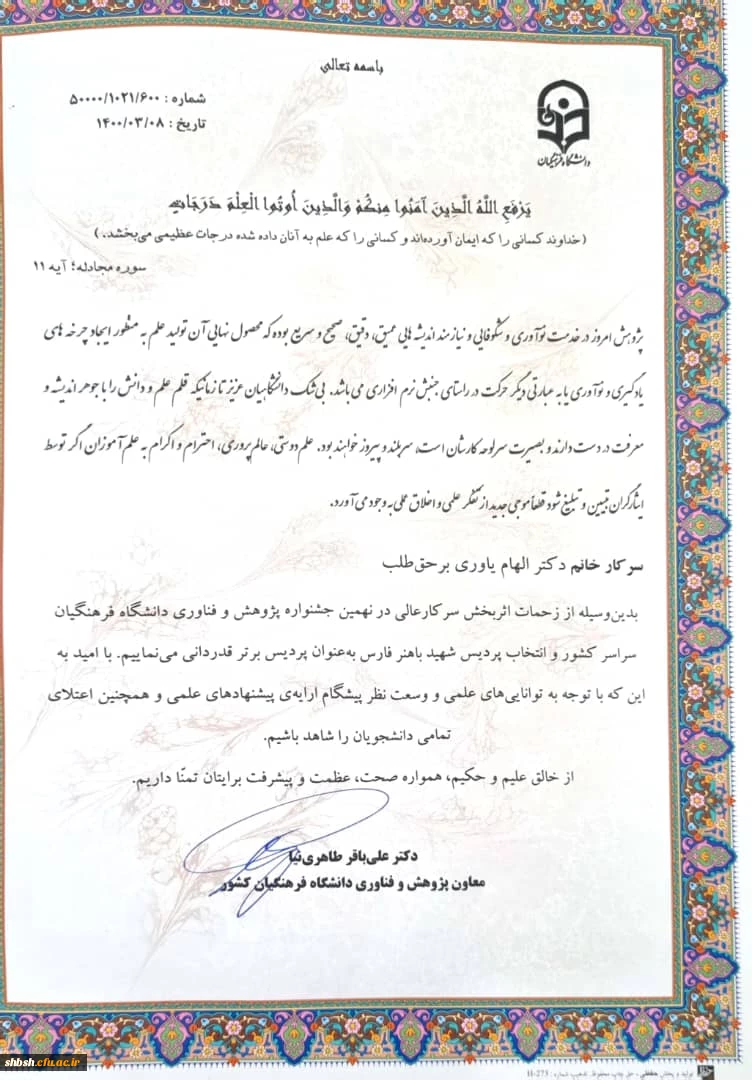 باسمه تعالی
شماره : ۵۰۰۰۰/۱۰۲۱/۶۰۰
تاریخ : ۱۴۰۰/۰۳/۰۸
دانشگاه فرهنگیان
يَرْفَعِ اللَّهُ الَّذِينَ آمَنُوا مِنكُمْ وَالَّذِينَ أُوتُوا الْعِلْمَ دَرَجَاتٍ
(خداوند کسانی را که ایمان آورده‌اند و کسانی را که علم به آنان داده شده درجات عظیمی می‌بخشد.)
سوره مجادله؛ آیه ۱۱
پژوهش امروز در خدمت نوآوری و شکوفایی و نیازمند اندیشه هایی عمیق، دقیق، صحیح و سریع بوده که محصول نهایی آن تولید علم به منظور ایجاد چرخه های
یادگیری و نوآوری یا به عبارتی دیگر حرکت در راستای جنبش نرم افزاری می باشد. بی شک دانشگاهیان عزیز تا زمانیکه قلم علم و دانش را با جوهر اندیشه و
معرفت در دست دارند و بصیرت سرلوحه کارشان است، سربلند و پیروز خواهند بود. علم دوستی، عالم پروری، احترام و اکرام به علم آموزان اگر توسط
ایثارگران تبیین و تبلیغ شود قطعاً موجی جدید از تفکر علمی و اخلاق عملی به وجود می آورد.
سرکار خانم دکتر الهام یاوری برحق‌طلب
بدین‌وسیله از زحمات اثربخش سرکارعالی در نهمین جشنواره پژوهش و فناوری دانشگاه فرهنگیان
سراسر کشور و انتخاب پردیس شهید باهنر فارس به‌عنوان پردیس برتر قدردانی می‌نماییم. با امید به
این که با توجه به توانایی‌های علمی و وسعت نظر پیشگام ارایه‌ی پیشنهادهای علمی و همچنین اعتلای
تمامی دانشجویان را شاهد باشیم.
از خالق علیم و حکیم، همواره صحت، عظمت و پیشرفت برایتان تمنّا داریم.
دکتر علی‌باقر طاهری‌نیا
معاون پژوهش و فناوری دانشگاه فرهنگیان کشور
shbsh.cfu.ac.ir
تولید و پخش حفظی - حق چاپ محفوظ. تذهیب شماره : H-275